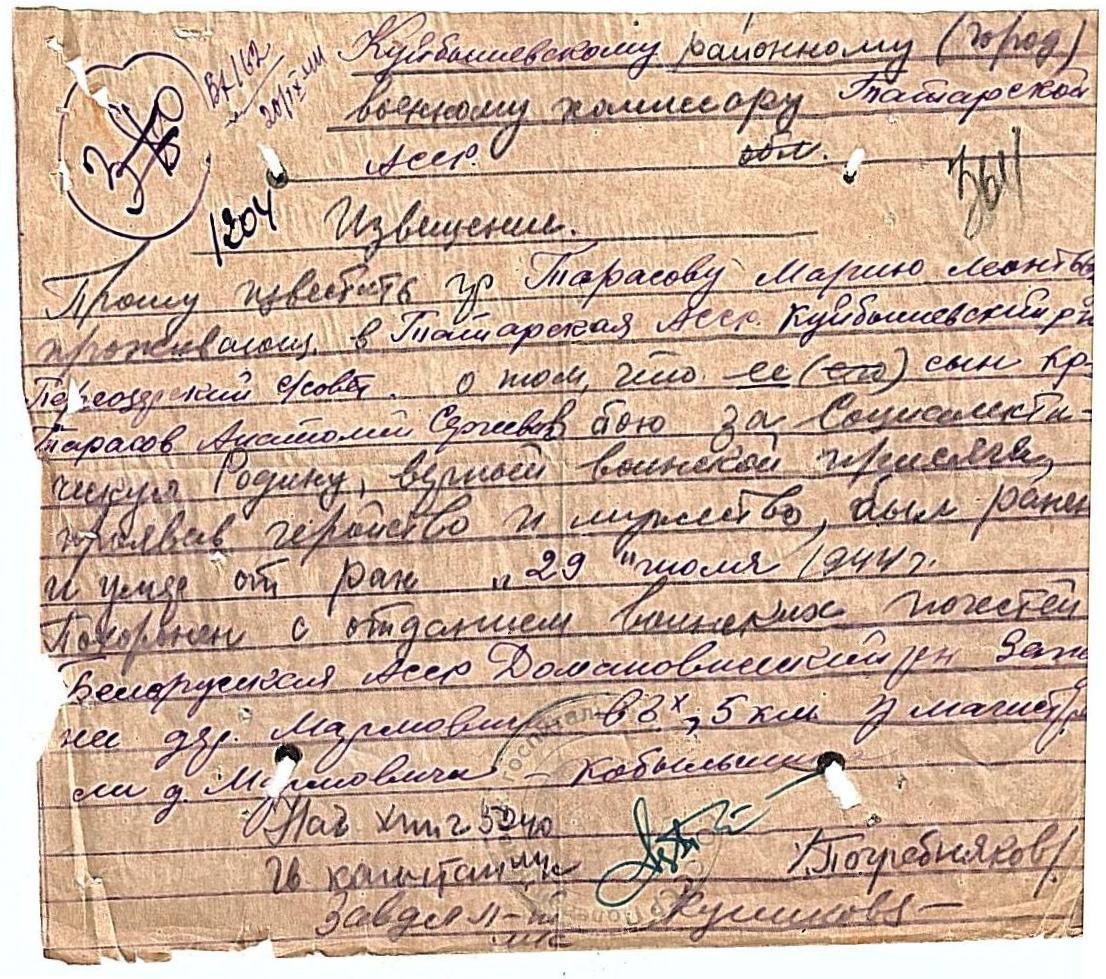 ВХ/162
20/IX
Куйбышевскому районному (город)
военному комиссару Татарской
Асср. обл.
364
1204
Извещение.
Прошу известить гр Тарасову Марию Леонтьев
проживающ. в Татарская Асср. Куйбышевский р-н
с/совет. о том, что ее (его) сын кр-
Тарасов Анатолий Сергеев в бою за Социалисти-
ческую Родину, верный воинской присяге,
проявив геройство и мужество, был ранен
и умер от ран "29" июля 1944 г.
Похоронен с отданием воинских почестей
Белорусская Асср Домановический рн Запа
нее дер. Мармовичи в 2х,5 км. у магистра
ли д. Мармовичи - Кобыльщина
Нач хппг 5240
капитан м/с /Погребняков/
Завдел л-т м/с Куликова-
госпиталь